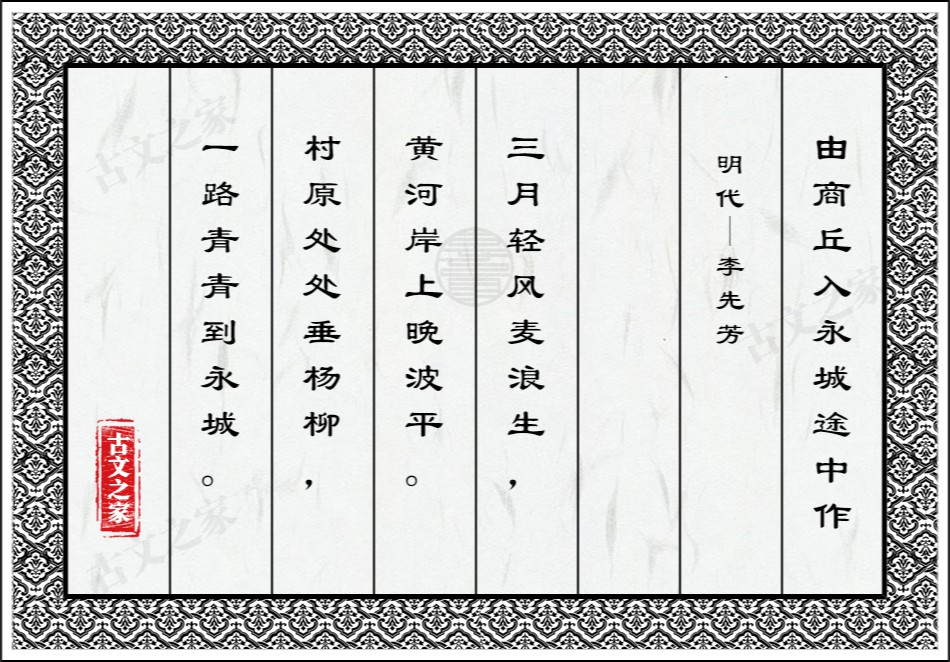 由商丘入永城途中作
明代—李先芳
三月轻风麦浪生，
黄河岸上晚波平。
村原处处垂杨柳，
一路青青到永城。
古文之家
古文之家
古文之家
古文之家